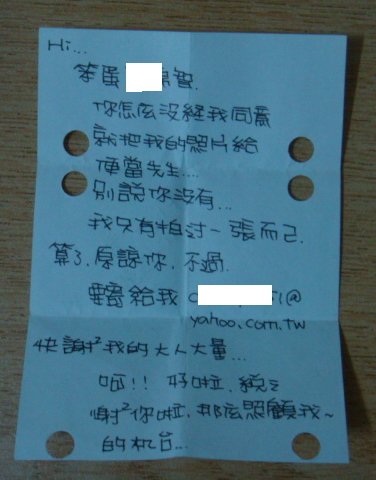 Hi...
笨蛋 智.
你怎么沒経我同意
就把我的照片給
便當先生....
別說你沒有...
我只有拍过一張而己.
算了.原諒你.不過.
要寄給我 @
yahoo.com.tw
快謝²我的大人大量...
呃!! 好啦.
謝²你啦.那麼照顧我~
的机台...